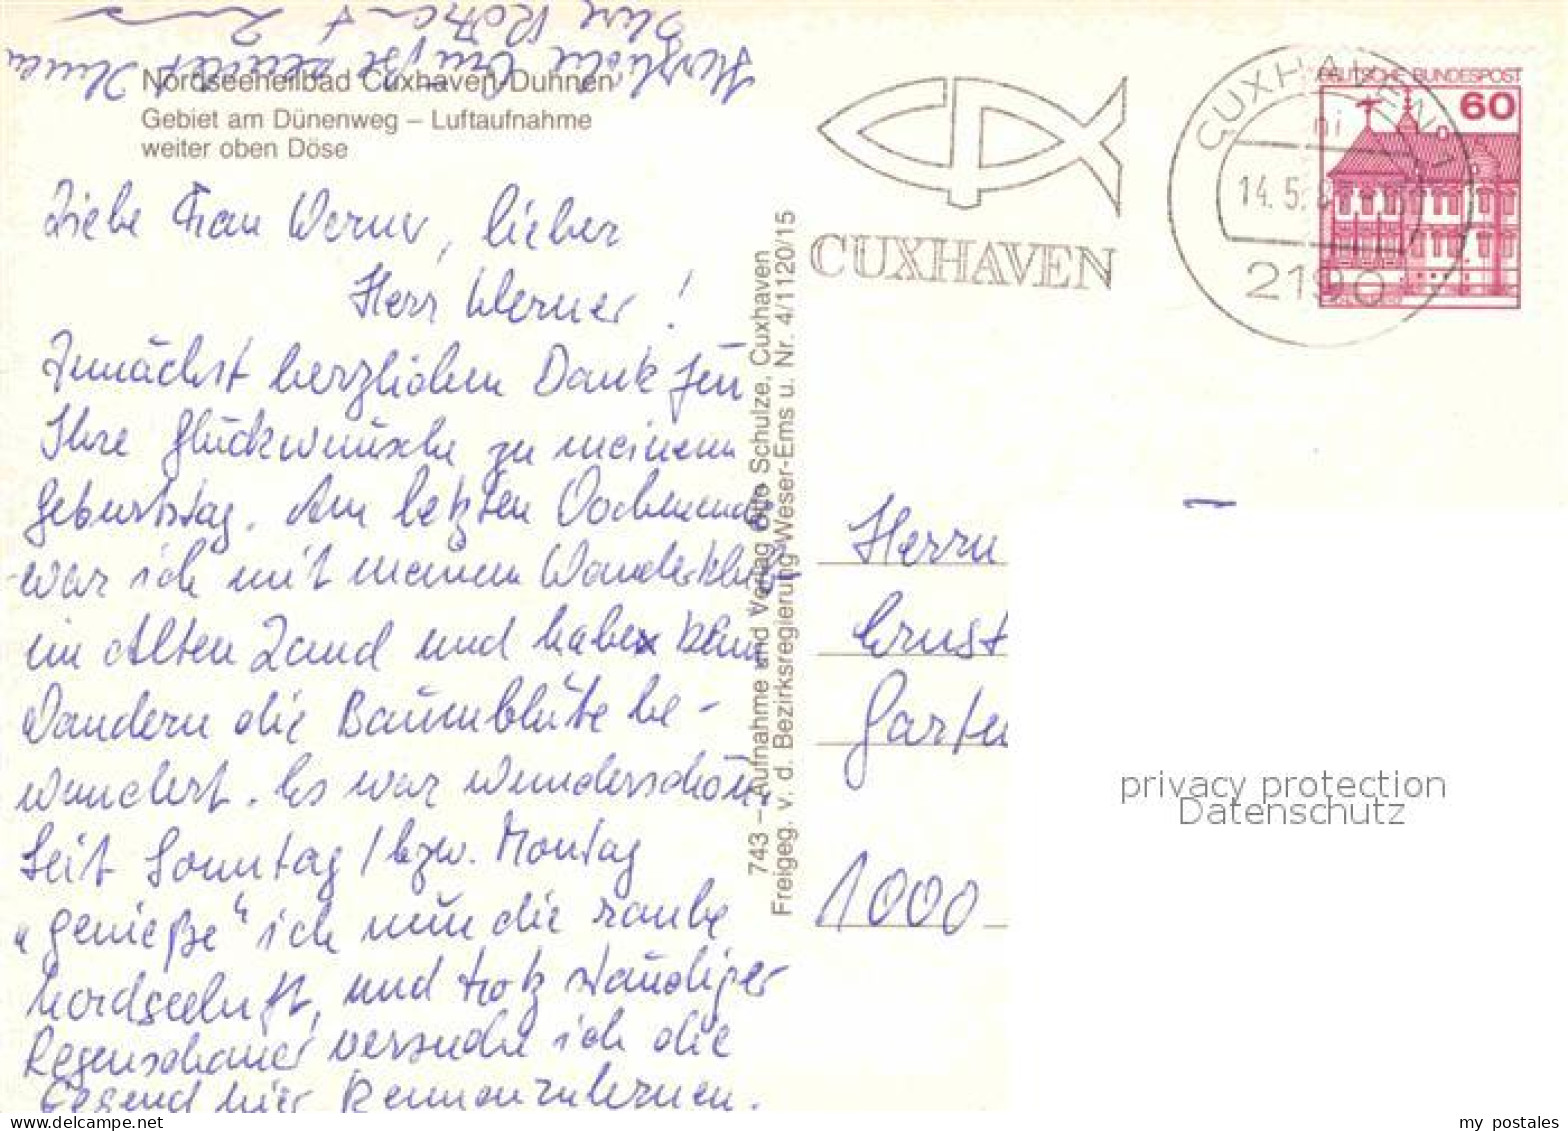 Nordseeheilbad Cuxhaven-Duhnen
Gebiet am Dünenweg – Luftaufnahme
weiter oben Döse
Liebe Frau Werner, lieber
Herr Werner!
Zunächst herzlichen Dank für
Ihre Glückwünsche zu meinem
Geburtstag. Am letzten Wochenende
war ich mit meinem Wanderklub
im Alten Land und habe beim
Wandern die Baumblüte be-
wundert. Es war wunderschön.
Seit Sonntag / bzw. Montag
„genieße“ ich nun die rauhe
Nordseeluft, und trotz ständiger
Regenschauer versuche ich die
Gegend hier kennenzulernen.
Herzliche Grüße sendet Ihnen
Ihre
743 – Aufnahme und Verlag Otto Schulze, Cuxhaven
Freigeg. v. d. Bezirksregierung Weser-Ems u. Nr. 4/1120/15
CUXHAVEN
CUXHAVEN 1
14.5.
2190
DEUTSCHE BUNDESPOST
60
Herrn
Ernst
Garten
1000
privacy protection
Datenschutz
my postales